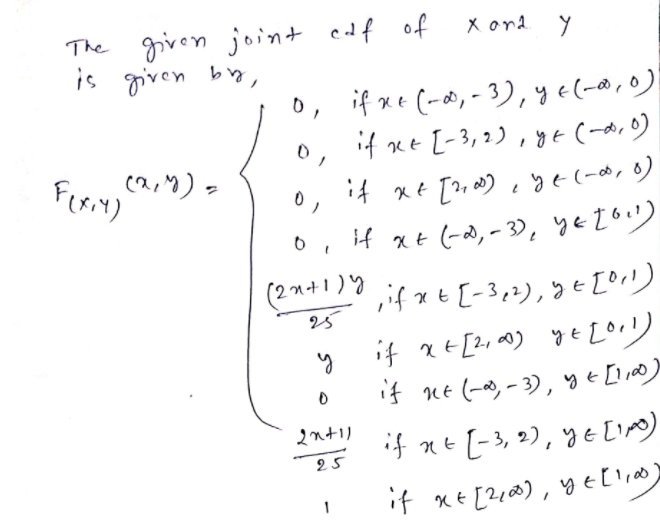 The given joint cdf of x and y
is given by,
0, if x ∈ (-∞, -3), y ∈ (-∞, 0)
0, if x ∈ [-3, 2), y ∈ (-∞, 0)
F(X,Y) (x, y) = 0, if x ∈ [2, ∞), y ∈ (-∞, 0)
0, if x ∈ (-∞, -3), y ∈ [0,1)
(2x+1)y / 25, if x ∈ [-3,2), y ∈ [0,1)
y if x ∈ [2, ∞) y ∈ [0,1)
0 if x ∈ (-∞, -3), y ∈ [1,∞)
2x+11 / 25 if x ∈ [-3, 2), y ∈ [1,∞)
1 if x ∈ [2,∞), y ∈ [1,∞)